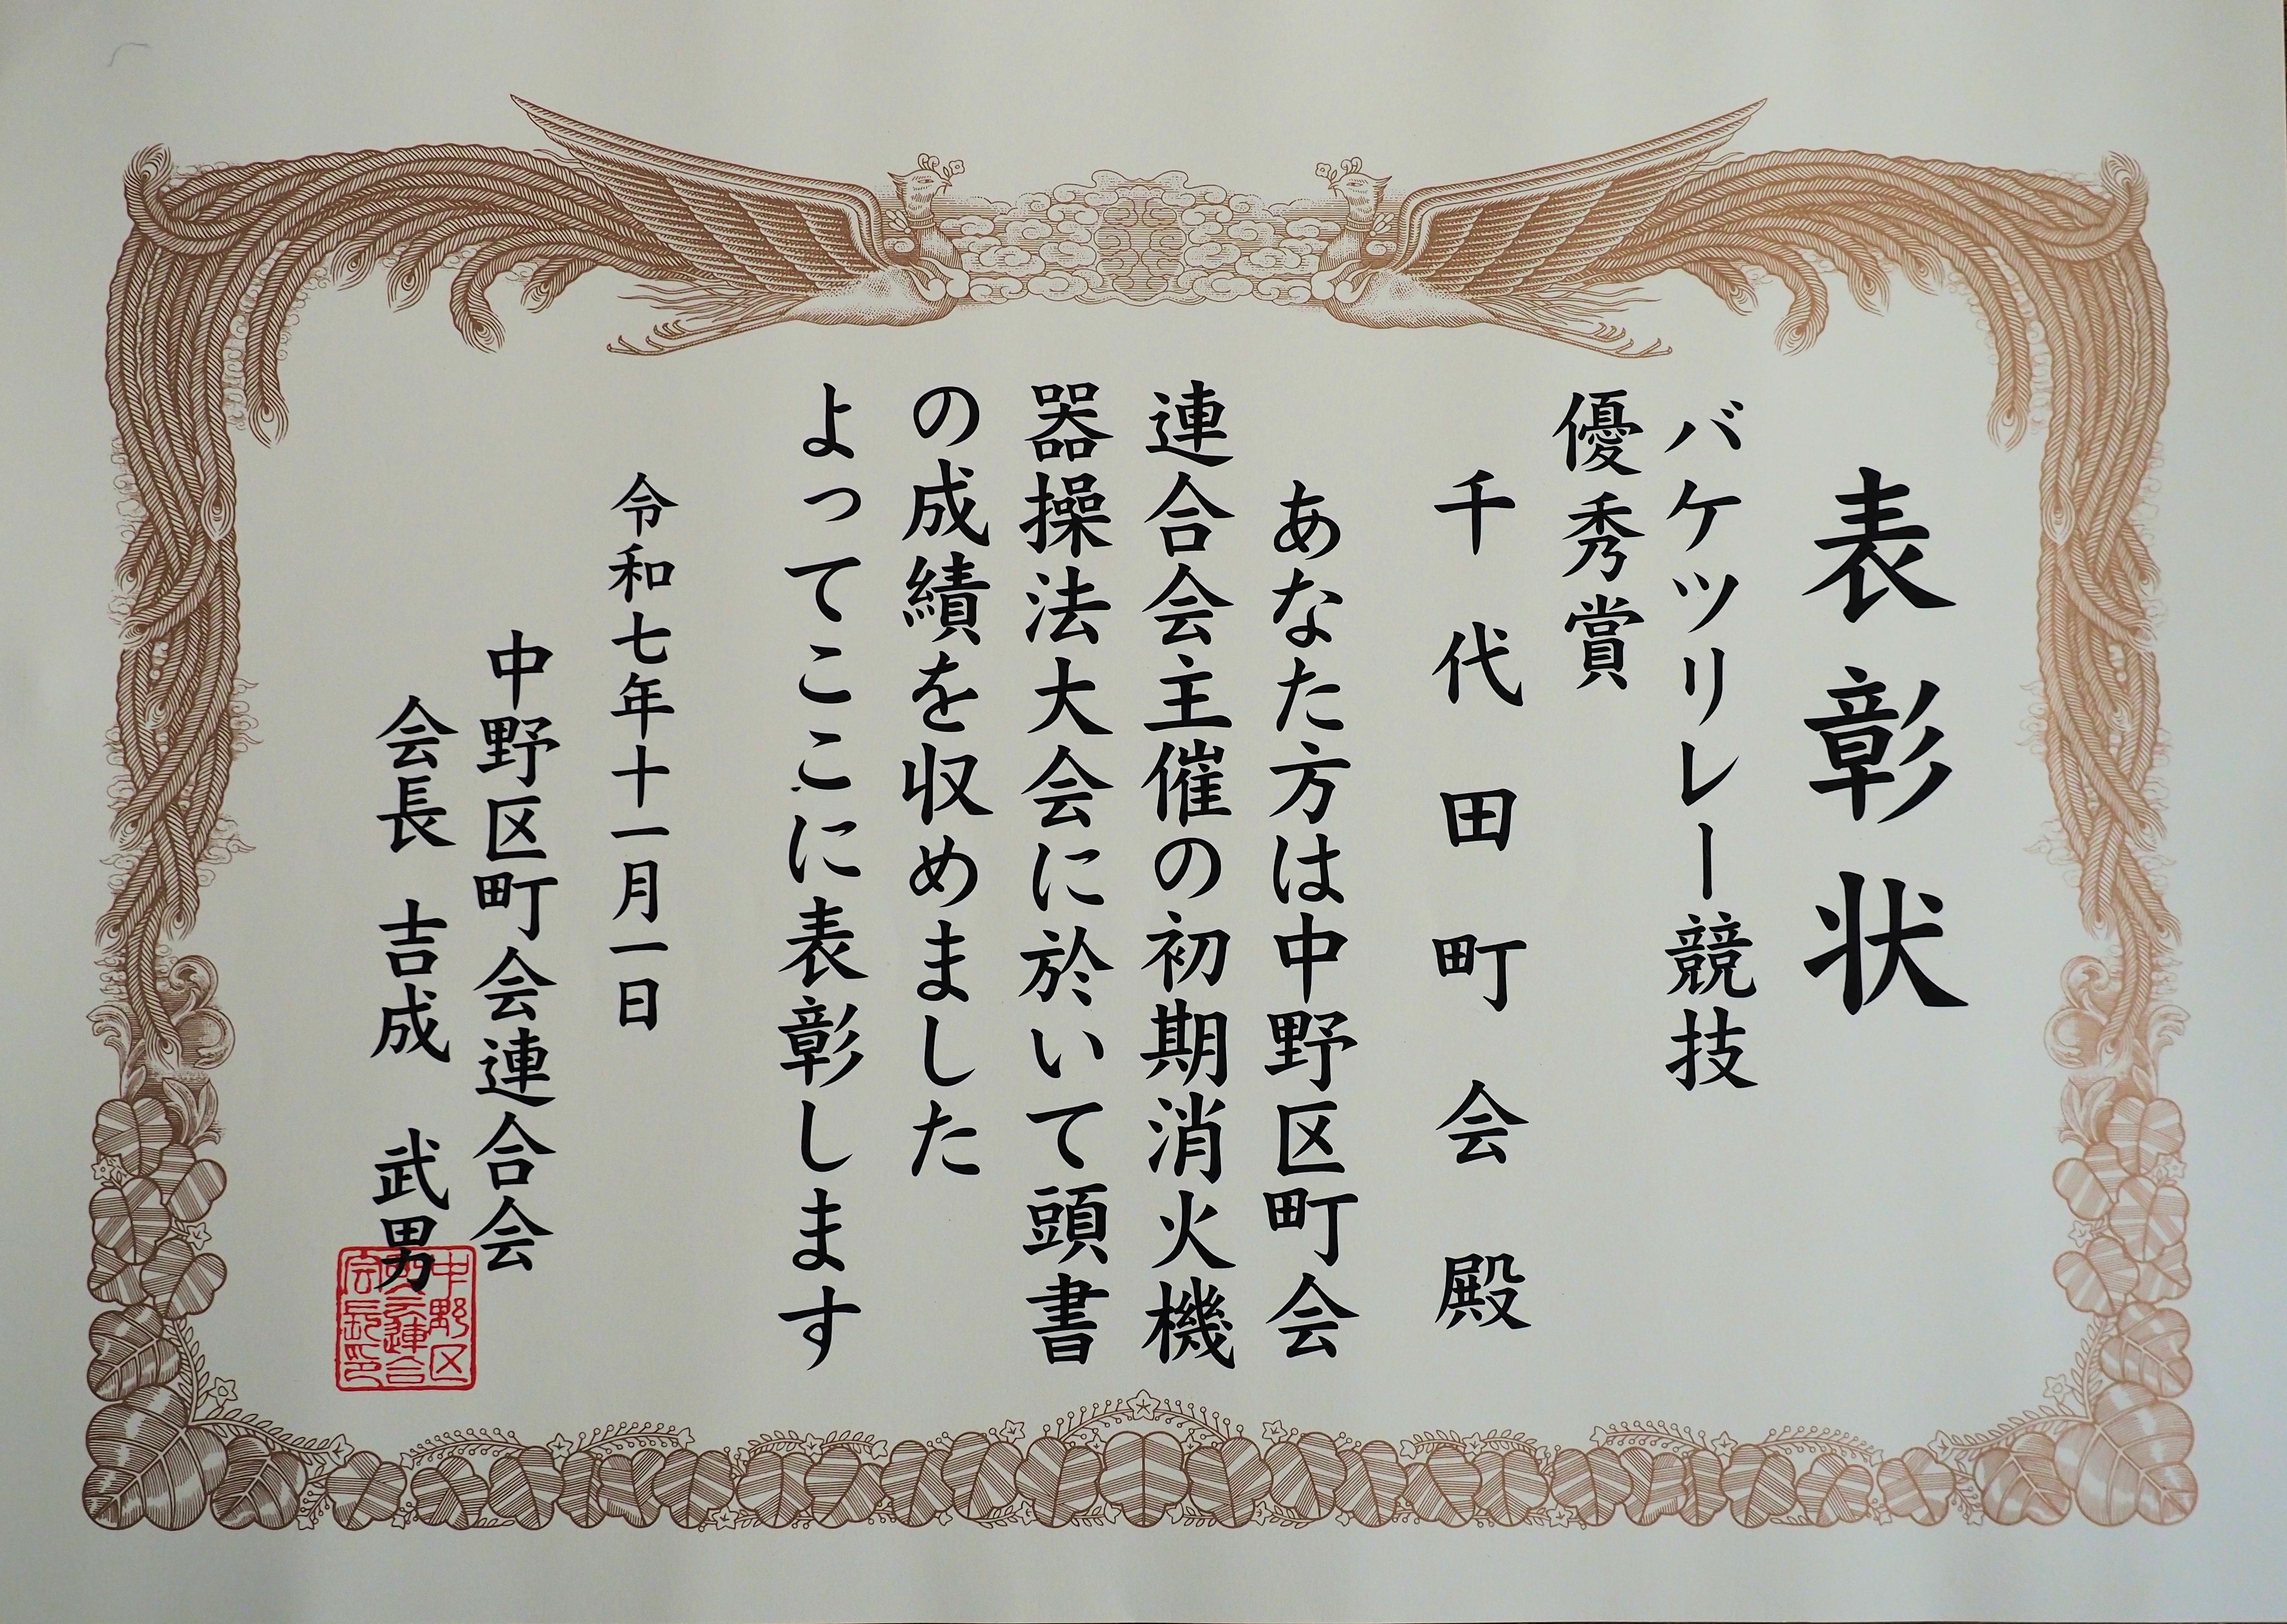 表彰状
バケツリレー競技
優秀賞
千代田町会殿
あなた方は中野区町会
連合会主催の初期消火機
器操法大会に於いて頭書
の成績を収めました
よってここに表彰します
令和七年十一月一日
中野区町会連合会
会長 吉成 武男